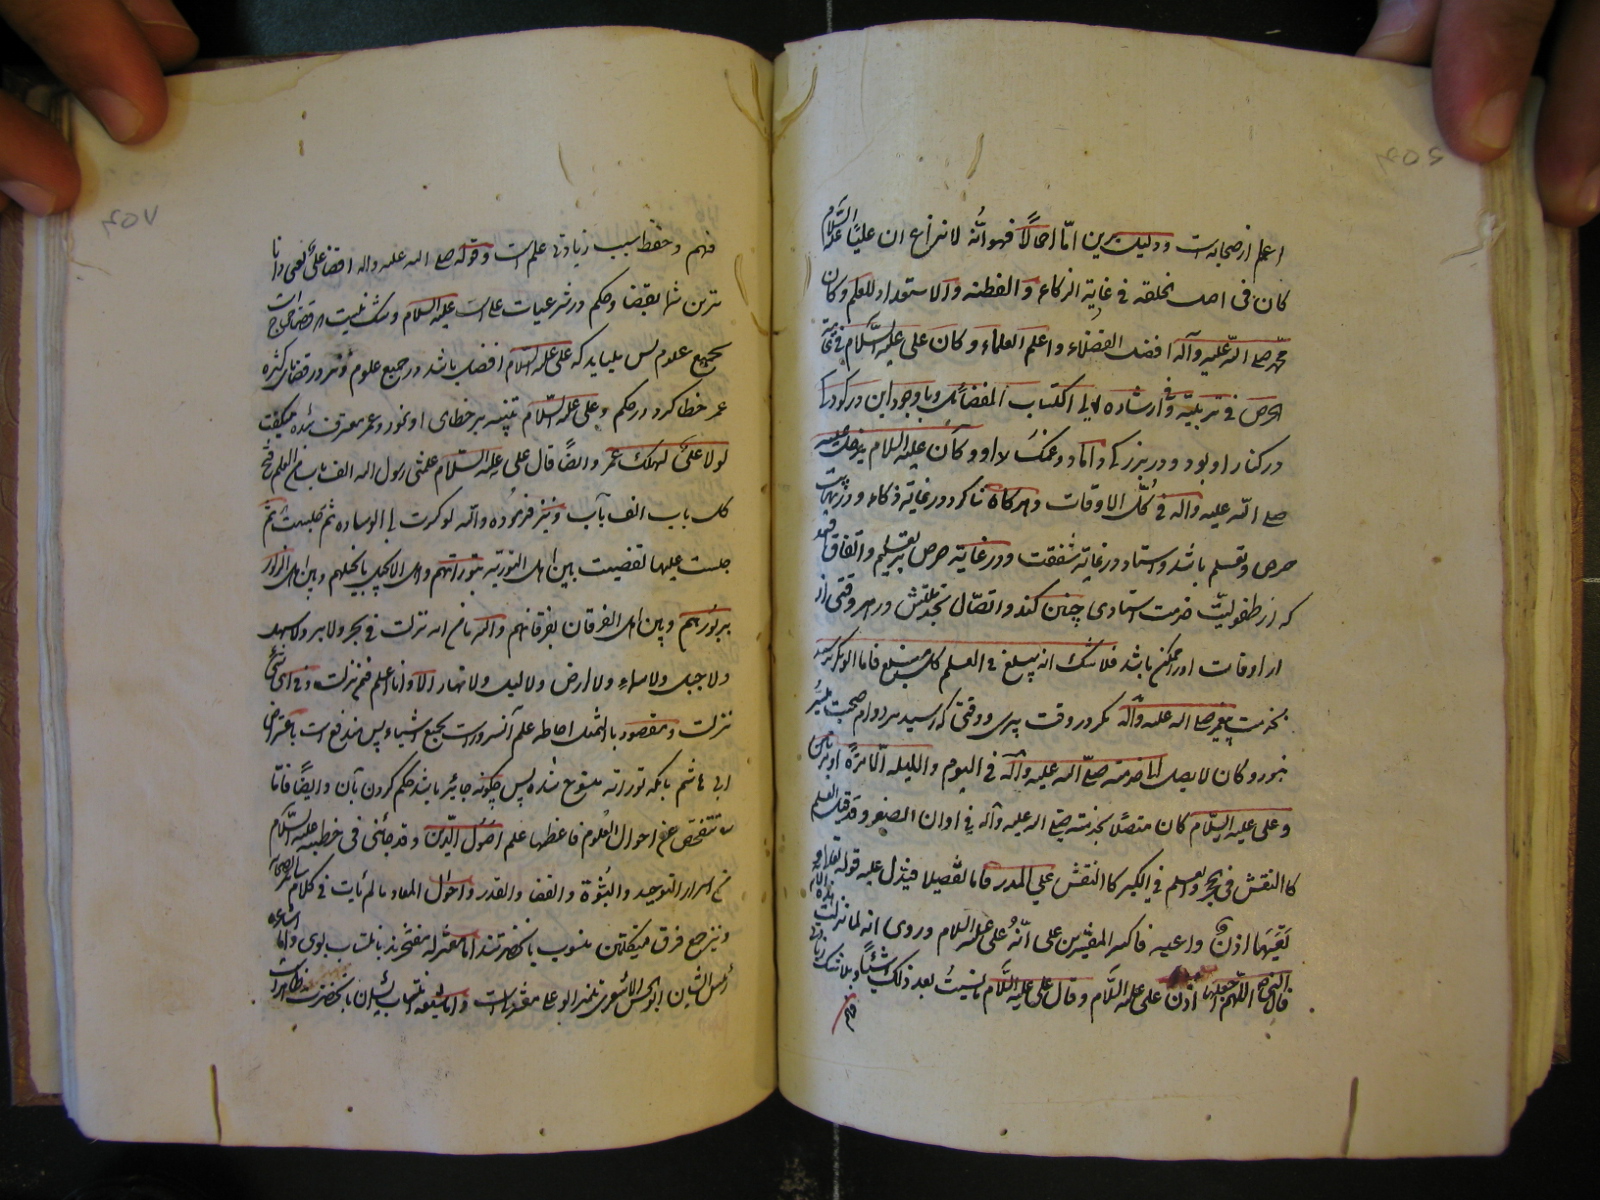 اعلم از صحابه است و دلیل برین امّا اجمالاً فهو انّه لا نزاع ان علیّاً علیه السّلام
کان فی اصل الخلقه فی غایة الذکاء و الفطنه و الاستعداد للعلم و کان
محمّد صلی الله علیه وآله افضل الفضلاء و اعلم العلماء و کان علی علیه السّلام فی غایة
الحرص فی تربیته و فی ارشاده الی اکتساب الفضائل و با وجود این در کودکی
در کنار او بود و در بزرکی داماد و او و کان علیه السلام یدخل علیه
صلی الله علیه وآله فی کلّ الاوقات و هرکاه شاکرد در غایة ذکاء و در نهایت
حرص و تعلم باشد و استاد در غایة شفقت و در غایة حرص بر تعلیم و اتفاق افتد
که از طفولیت خدمت استادی چنین کند و اتصال بخدمتش در هر وقتی از
اوقات او را ممکن باشد فلا شک انه یبلغ فی العلم کل مبلغ فاما ابوبکر
بخدمت پیغمبر صلی الله علیه وآله مکر در وقت پیری و وقتی که رسید بر دوام صحبت میسّر
نبود و کان لا یصل الی خدمته صلّی الله علیه وآله فی الیوم و اللیله الّا مرّة او مرتین
و علی علیه السّلام کان متصلا بخدمته صلی الله علیه وآله فی اوان الصغر و قد قیل العلم
فی الصغر کالنقش فی الحجر و العلم فی الکبر کالنقش علی المدر فاما تفصیلا فیدل علیه قوله تعالی و
تعیها اذن واعیه فاکثر المفسّرین علی انّه علی علیه السلام و روی انه لما نزلت هذه الآیة
قال النبی اللّهم اجعلها اذن علی علیه السّلام و قال علی علیه السّلام ما نسیت بعد ذلک شیئاً و بلا شک زیادتی
فهم
فهم و حفظ سبب زیادتی علم است و قوله صلی الله علیه واله اقضاکم علیّ یعنی دانا
ترین شما بقضا و حکم در شرعیات علی است علیه السلام و شک نیست در قضا احتیاج
بجمیع علوم پس میباید که علی علیه السّلام افضل باشد در جمیع علوم و نیز در قضایای کثیره
عمر خطا کرد در حکم و علی علیه السّلام تنبیه بر خطای او نمود و عمر معترف شده میکفت
لولا علیّ لهلک عمر و ایضاً قال علی علیه السّلام علّمنی رسول الله الف باب من العلم فتح
کل باب الف باب و نیز فرموده والله لو کسرت لی الوساده ثم جلست ثم
جلست علیها لقضیت بین اهل التوریة بتوراتهم و اهل الانجیل بانجیلهم و بین اهل الزبور
بزبورهم و بین اهل الفرقان بفرقانهم والله ما من آیة نزلت فی بحر و لا بر و لا سهل
و لا جبل و لا سماء و لا ارض و لا لیل و لا نهار الّا و انا اعلم فیمن نزلت و فی ای شئ
نزلت و مقصود بالتمثل احاطه علم آنسرور است بجمیع اشیاء پس مندفع است اعتراض
ابی هاشم بانکه توراة منسوخ شده پس چکونه جائز باشد حکم کردن بآن و ایضاً فانّا
نتفحّص عن احوال العلوم فاعظمها علم اصول الدّین و قد جاء فی خطبه علیه السّلام
من اسرار التوحید و النبوّة و القضا و القدر و احوال المعاد ما لم یأت فی کلام سایر الصحابه
و نیز جمیع فرق متکلمین منسوب بآنحضرتند اما معتزله مفتخرند بانتساب بوی و امّا اشاعره
رئیس الشان ابو الحسن الاشعری تلمیذ ابو علی معتزله است و اما شیعه انتساب ایشان بآنحضرت ظاهر است